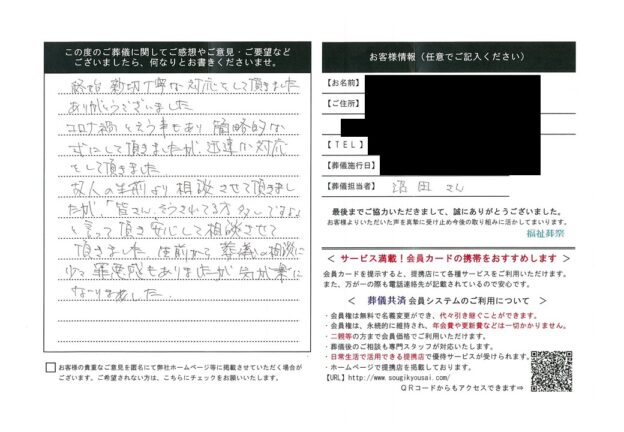 この度のご葬儀に関してご感想やご意見・ご要望など
ございましたら、何なりとお書きくださいませ。
終始 親切丁寧な対応をして頂きました
ありがとうございました
コロナ禍という事もあり 簡略的な
ずにして頂きましたが、迅速な対応
をして頂きました
故人の生前より相談させて頂きまし
たが、「皆さん、そうされてる方多いですよ」
と言って頂き安心して相談させて
頂きました 生前から葬儀の相談に
少々罪悪感もありましたが気が楽に
なりました.
お客様の貴重なご意見を匿名にて弊社ホームページ等に掲載させていただく場合が
ございます。ご希望されない方は、こちらにチェックをお願いいたします。
お客様情報（任意でご記入ください）
【お名前】
【ご住所】
【ＴＥＬ】
【葬儀施行日】
【葬儀担当者】 沼田 さん
最後までご協力いただきまして、誠にありがとうございました。
お客様よりいただいた声を真摯に受け止め今後の取り組みに活かしてまいります。
福祉葬祭
＜ サービス満載！会員カードの携帯をおすすめします ＞
会員カードを提示すると、提携店にて各種サービスをご利用いただけます。
また、万が一の際も電話連絡先が記載されているので安心です。
＜ 葬儀共済 会員システムのご利用について ＞
・会員権は無料で名義変更ができ、代々引き継ぐことができます。
・会員権は、永続的に維持され、年会費や更新費などは一切かかりません。
・二親等の方まで会員価格でご利用いただけます。
・葬儀後のご相談も専門スタッフが対応いたします。
・日常生活で活用できる提携店で優待サービスが受けられます。
・ホームページで提携店を掲載しております。
【URL】http://www.sougikyousai.com/
ＱＲコードからもアクセスできます⇒